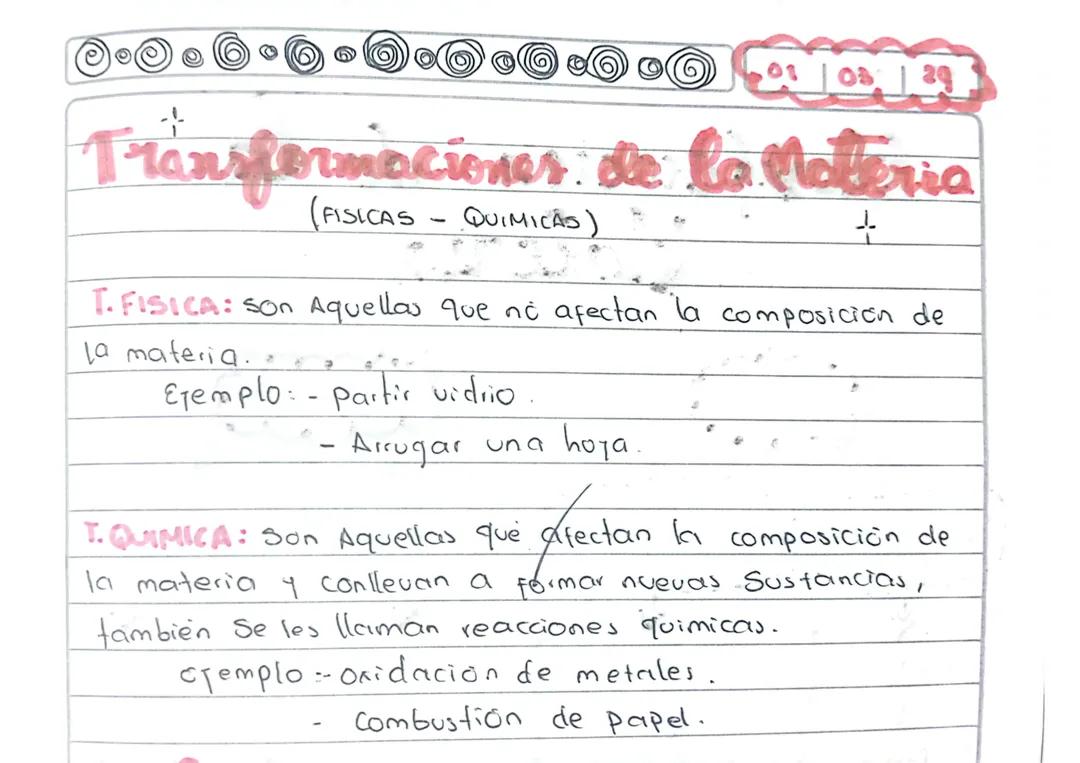 01 | 03 | 29
Transformaciones de la Matteria
(FISICAS - QUIMICAS)
T. FISICA: son Aquellas que no afectan la composición de
la materia.
Ejemplo: - partir vidrio.
- Arrugar una hoja.
T. QUIMICA: son Aquellas que afectan la composición de
la materia y conllevan a formar nuevas sustancias,
también se les llaman reacciones quimicas.
ejemplo:- oxidación de metales.
- combustión de papel.